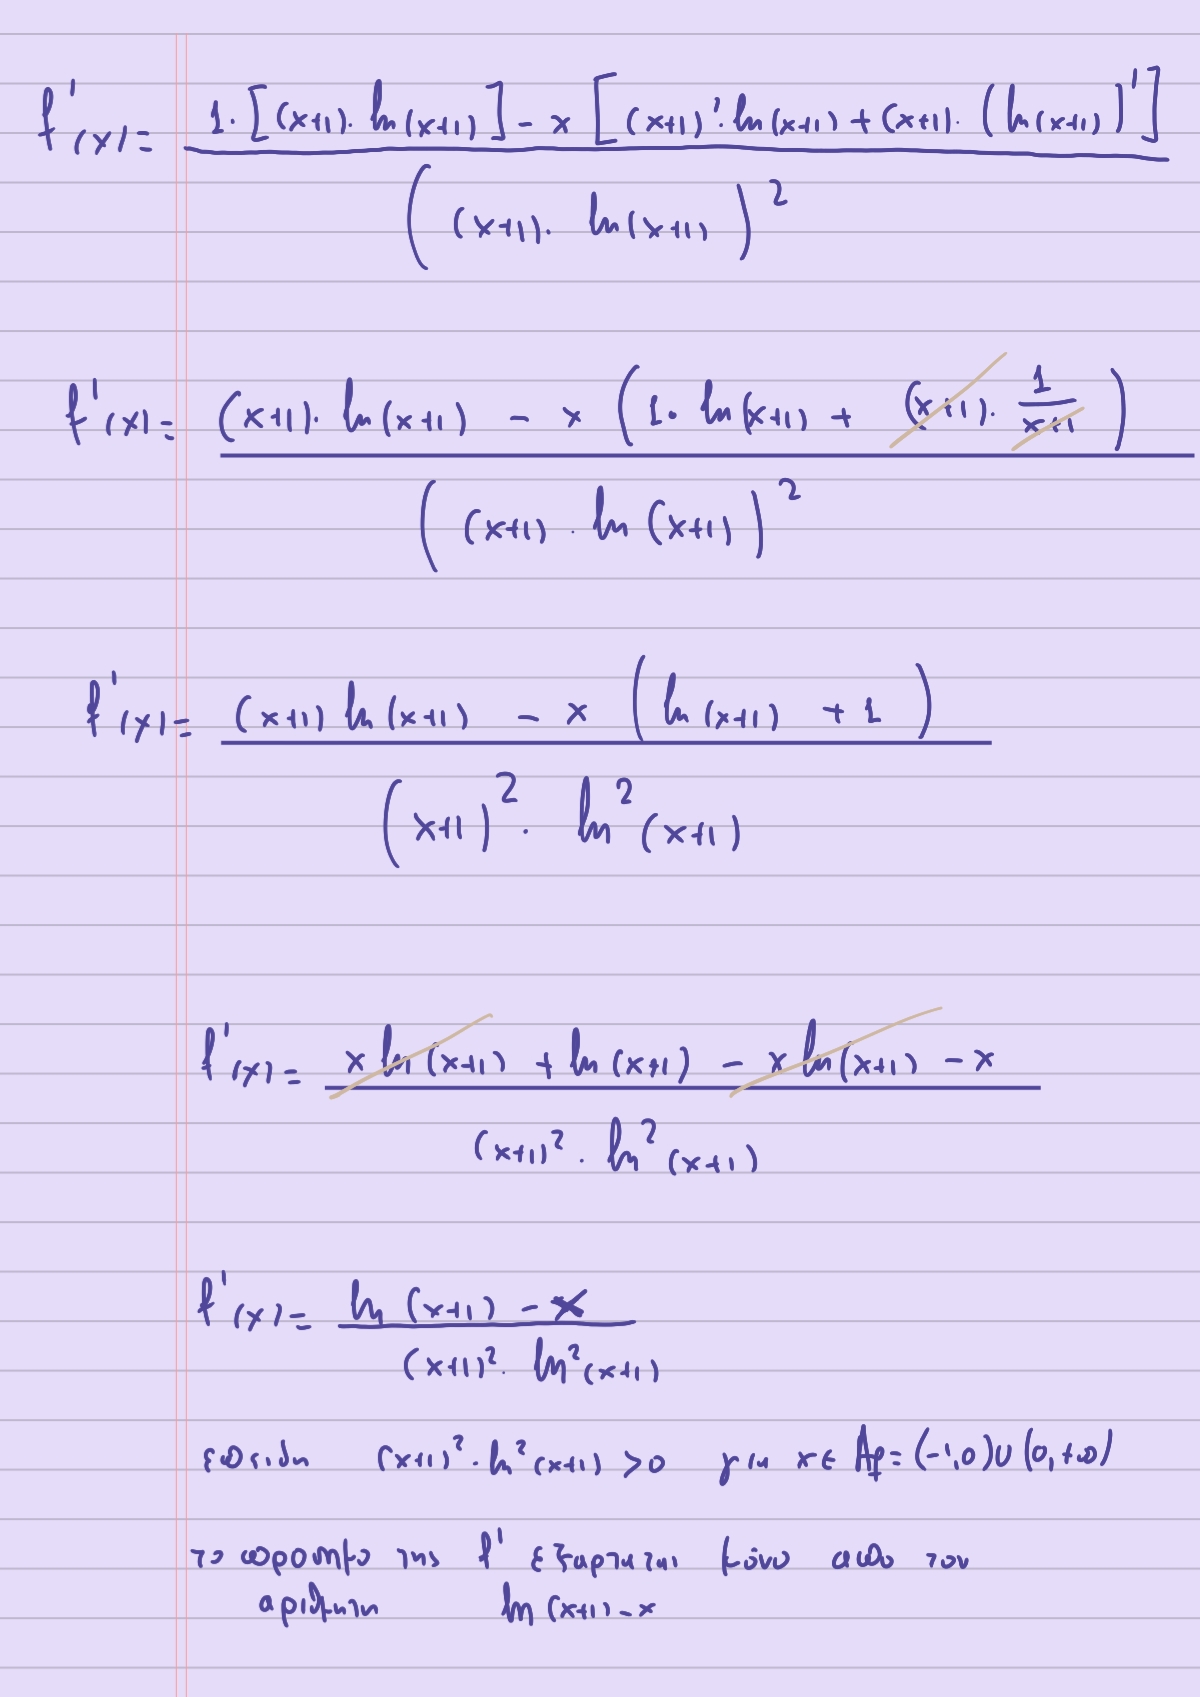 f'(x) = 1·[(x+1)·ln(x+1)] - x[(x+1)'·ln(x+1) + (x+1)·(ln(x+1))']
((x+1)·ln(x+1))²
f'(x) = (x+1)·ln(x+1) - x(1·ln(x+1) + (x+1)·1/(x+1))
((x+1)·ln(x+1))²
f'(x) = (x+1)ln(x+1) - x(ln(x+1) + 1)
(x+1)²·ln²(x+1)
f'(x) = x ln(x+1) + ln(x+1) - x ln(x+1) - x
(x+1)²·ln²(x+1)
f'(x) = ln(x+1) - x
(x+1)²·ln²(x+1)
επειδη (x+1)²·ln²(x+1) > 0 για x ∈ Af = (-1,0)∪(0,+∞)
το προσημο της f' εξαρταται μόνο απο τον
αριθμητη ln(x+1) - x